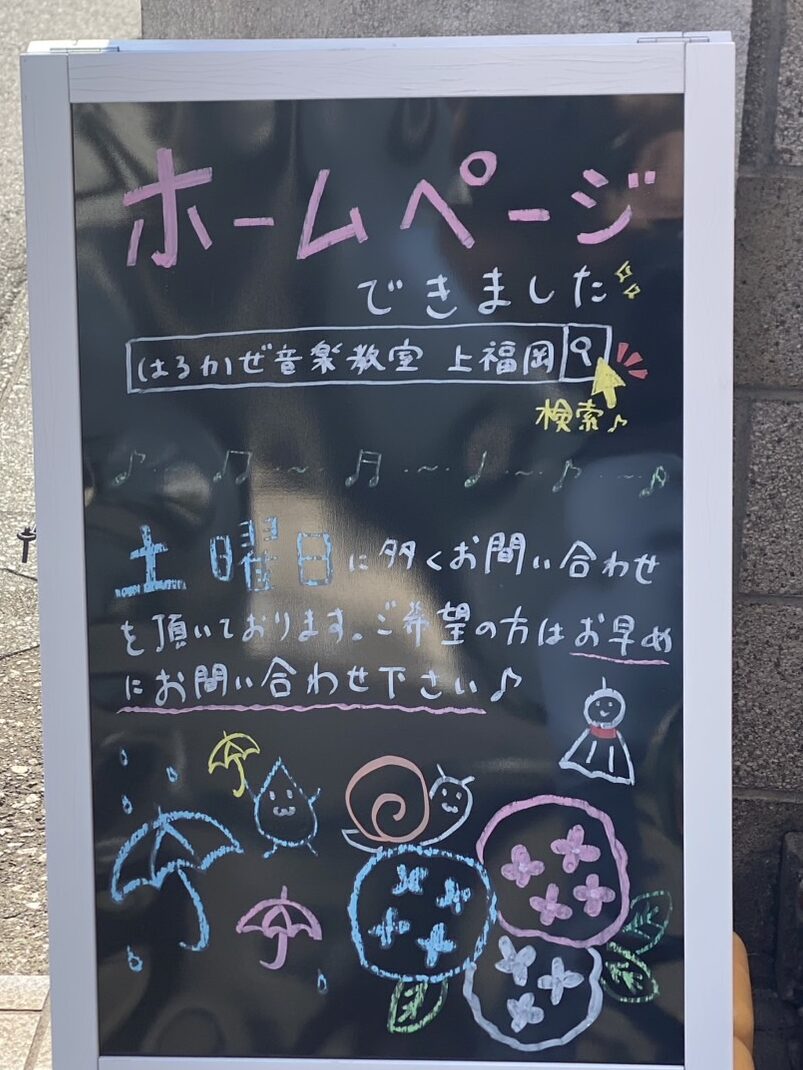 ホームページ
できました
はるかぜ音楽教室 上福岡
検索♪
土曜日に多くお問い合わせ
を頂いております。ご希望の方はお早め
にお問い合わせ下さい♪